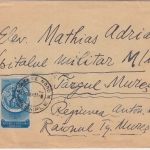 Elev. Mathias Adria
Spitalul Militar M/
Targul Mures
Regiunea Auton.
Raionul Tg. Mures